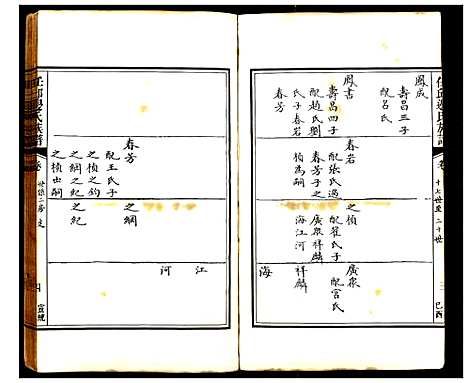 任邱邊氏族譜
十七世至二十世
己酉
鳳成
壽昌三子
配呂氏
鳳書
壽昌四子
配趙氏劉
氏子春岩
春芳
春岩
配張氏過
春芳子之
楨為嗣
之楨
配崔氏子
廣泉祥麟
海江河
廣泉
配宫氏
祥麟
海
春芳
配王氏子
之楨之鈞
之綱之紀
之楨出嗣
之綱
之紀
江
河
任邱邊氏族譜
卷
世徐二房
宣統